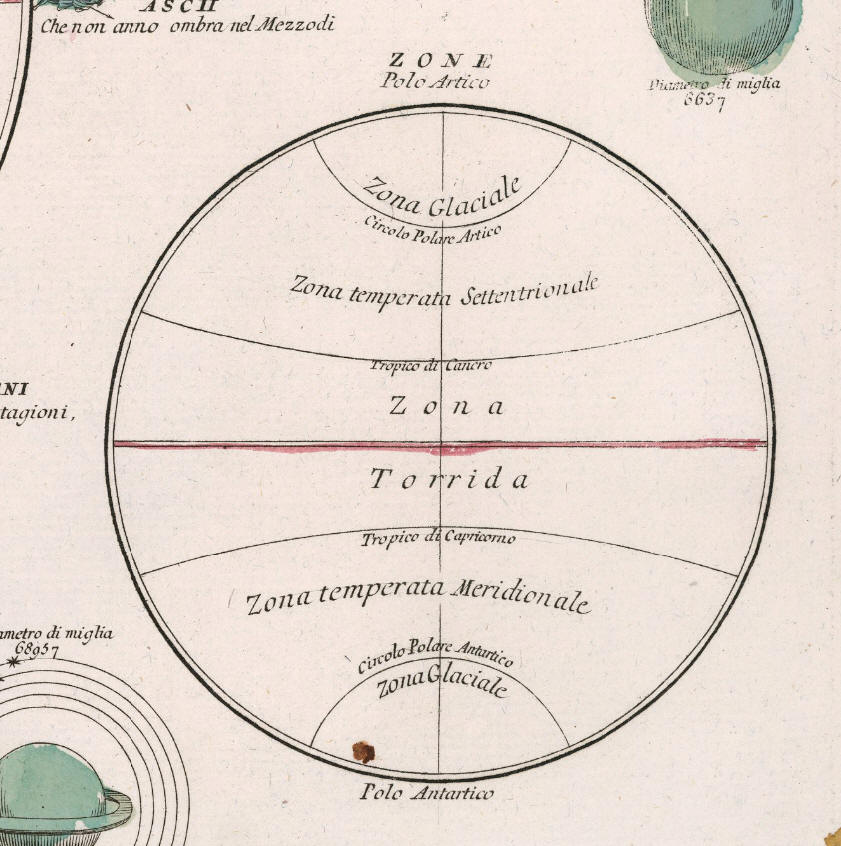 ASCII
Che non anno ombra nel Mezzodi
ZONE
Polo Artico
Diametro di miglia
6637
Zona Glaciale
Circolo Polare Artico
Zona temperata Settentrionale
Tropico di Cancro
Zona
NI
tagioni,
Torrida
Tropico di Capricorno
Zona temperata Meridionale
ametro di miglia
68957
Circolo Polare Antartico
Zona Glaciale
Polo Antartico